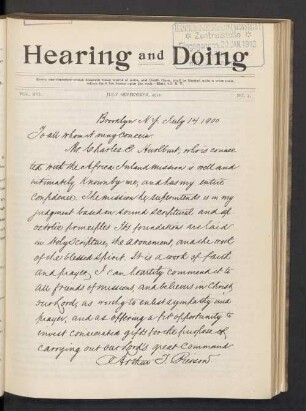 Hearing and Doing
VOL. XVI.
JULY-SEPTEMBER, 1911.
NO. 3.
Brooklyn N.Y. July 14, 1910
To all whom it may concern.
Mr. Charles E. Hurlburt, who is connec
ted with the Africa Inland Mission is well and
intimately known by me, and has my entire
confidence. The mission he superintends is in my
judgment based on sound scriptural and ap
ostolic principles. Its foundations are laid
in Holy Scripture, the atonement, and the work
of the blessed Spirit. It is a work of faith
and prayer. I can heartily commend it to
all friends of missions, and believers in Christ
our Lord, as worthy to enlist sympathy and
prayer, and as offering a fit opportunity to
invest consecrated gifts for the purpose of
carrying out our Lord's great command
Arthur T. Pierson